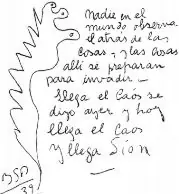 Nadie en el
mundo observa
el atrás de las
cosas, y las cosas
alli se preparan
para invadir –
Llega el Caos se
dijo ayer y hoy
llega el Caos
y llega Sion
39